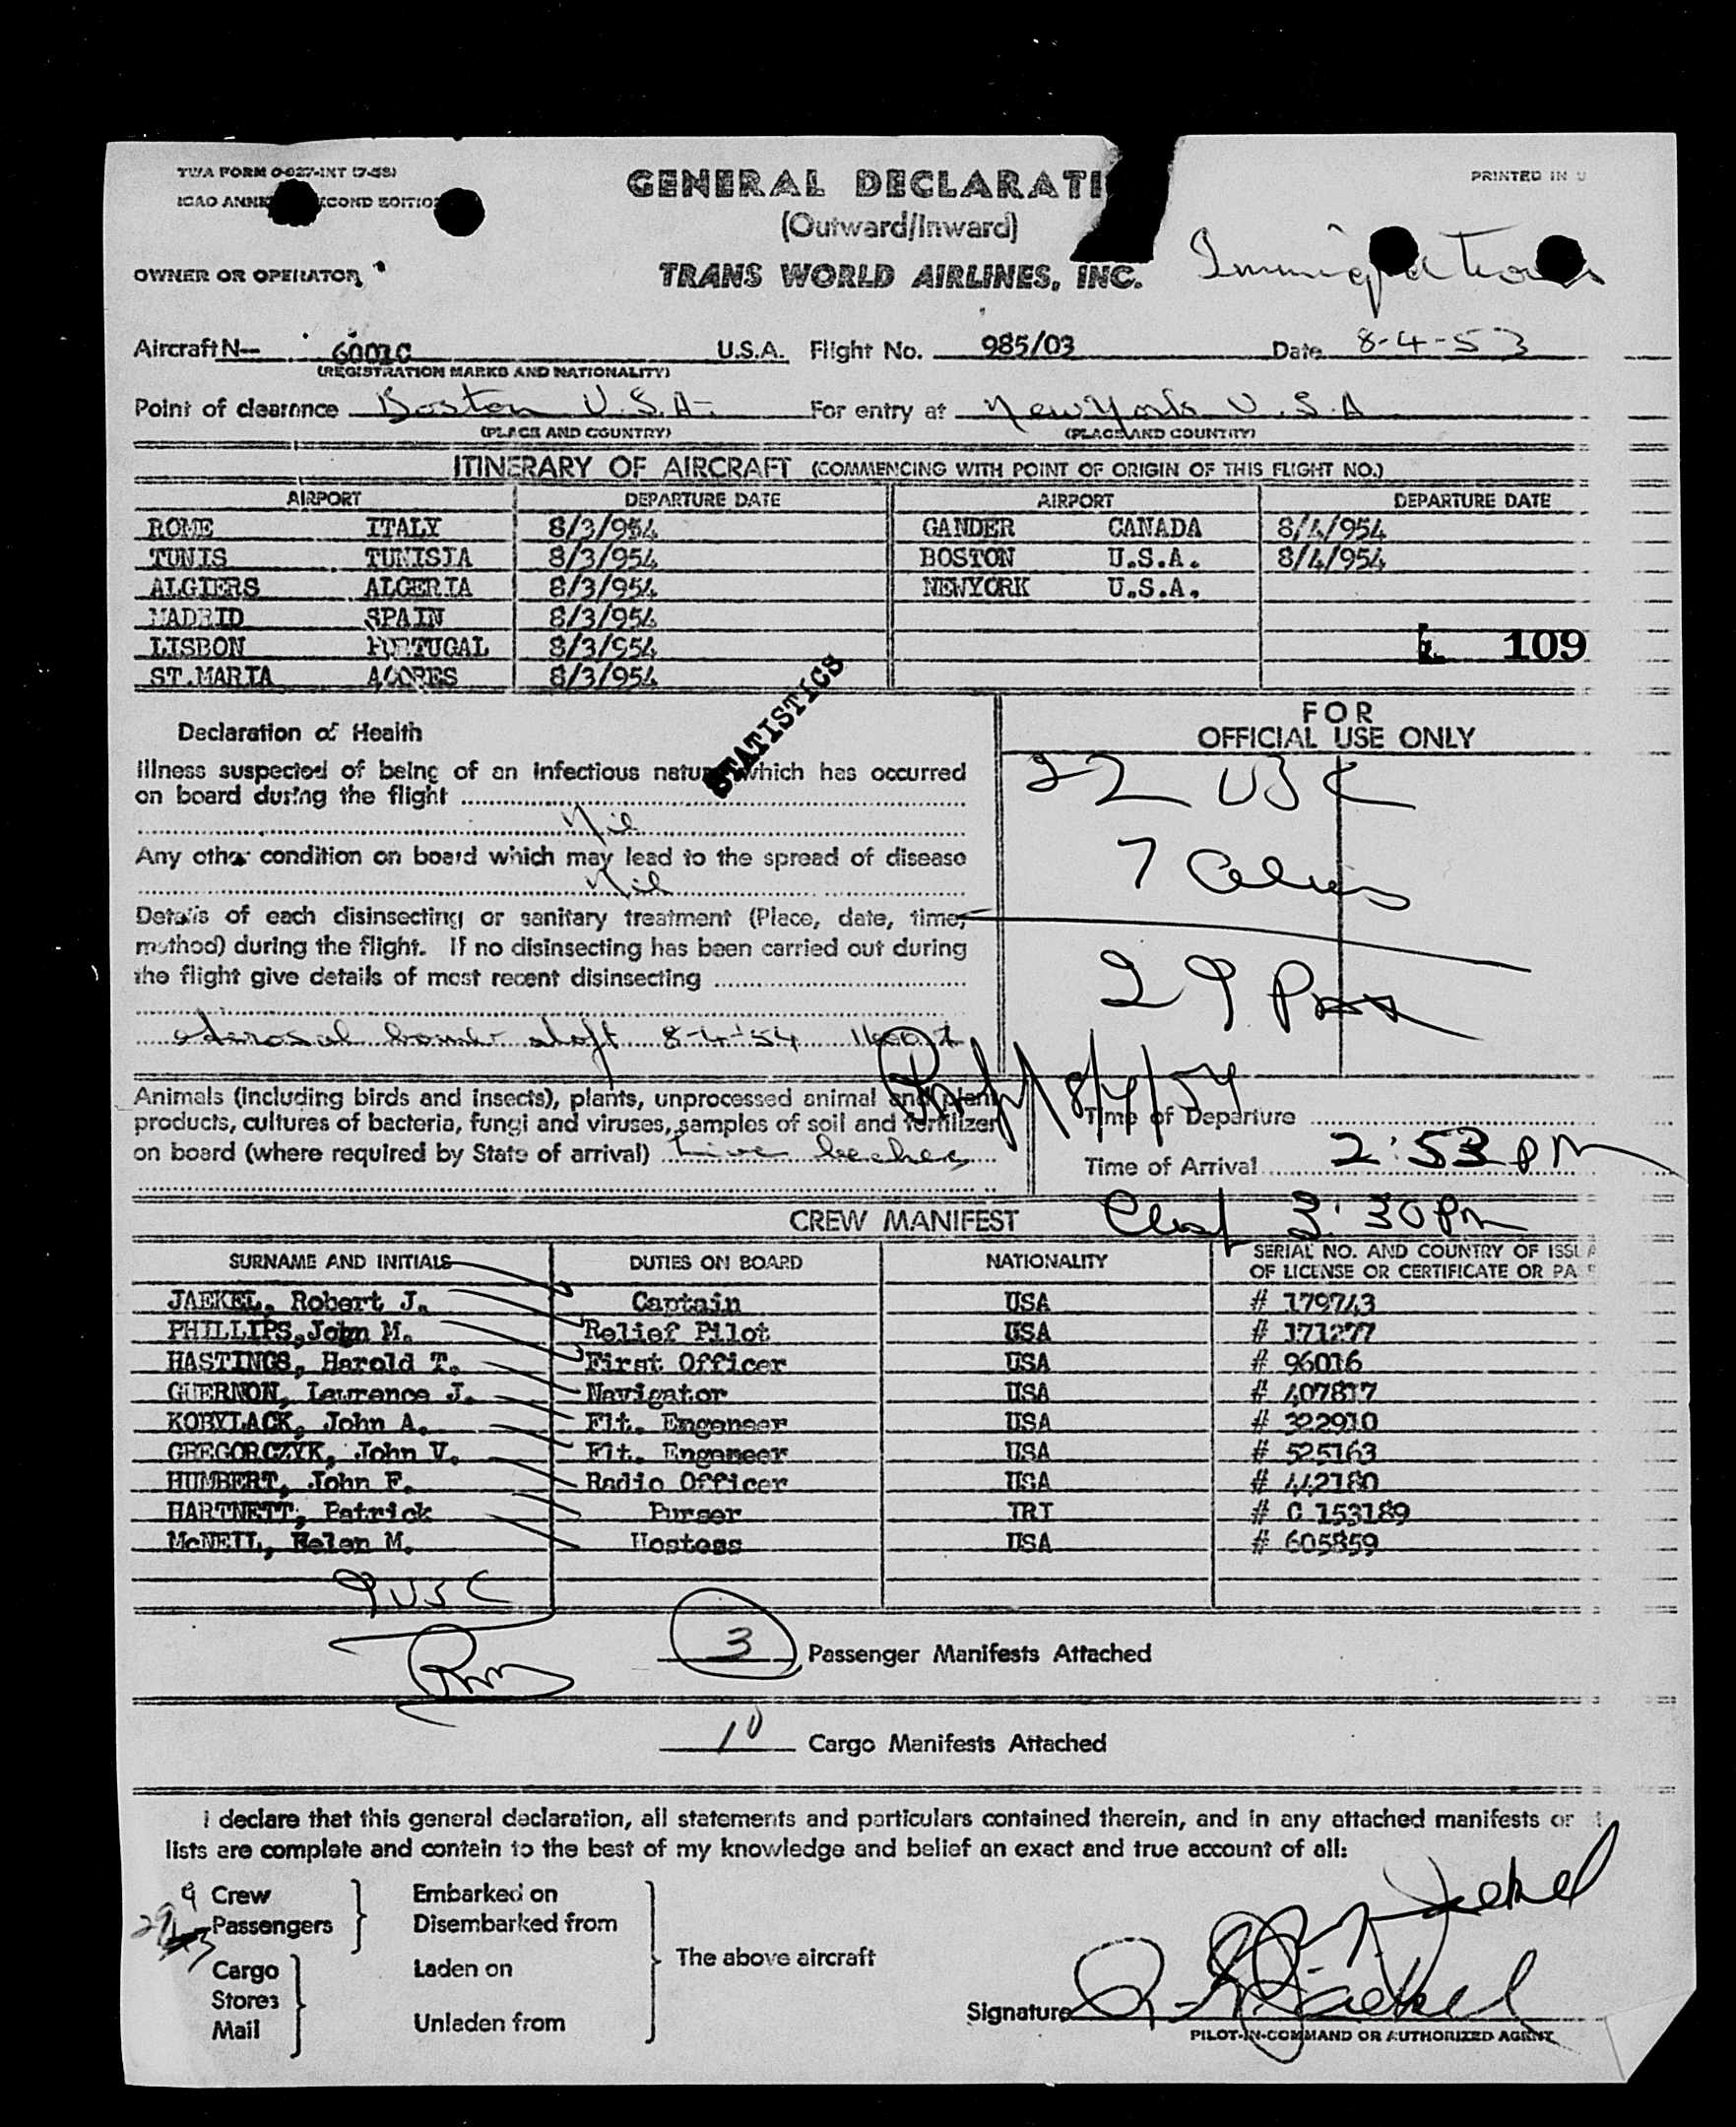 TWA FORM O-027-INT (7-53)
PRINTED IN U
ICAO ANNEX SECOND EDITION
GENERAL DECLARATI
(Outward/Inward)
OWNER OR OPERATOR
TRANS WORLD AIRLINES, INC.
Immigration
Aircraft N— 6001C U.S.A. Flight No. 985/03 Date 8-4-53
(REGISTRATION MARKS AND NATIONALITY)
Point of clearance Boston U.S.A. For entry at New York U.S.A
(PLACE AND COUNTRY) (PLACE AND COUNTRY)
ITINERARY OF AIRCRAFT (COMMENCING WITH POINT OF ORIGIN OF THIS FLIGHT NO.)
AIRPORT DEPARTURE DATE AIRPORT DEPARTURE DATE
ROME ITALY 8/3/954 GANDER CANADA 8/4/954
TUNIS TUNISIA 8/3/954 BOSTON U.S.A. 8/4/954
ALGIERS ALGERIA 8/3/954 NEWYORK U.S.A.
MADRID SPAIN 8/3/954
LISBON PORTUGAL 8/3/954 109
ST.MARIA ACORES 8/3/954
STATISTICS
Declaration of Health
Illness suspected of being of an infectious nature which has occurred
on board during the flight
Nil
Any other condition on board which may lead to the spread of disease
Nil
Details of each disinsecting or sanitary treatment (Place, date, time,
method) during the flight. If no disinsecting has been carried out during
the flight give details of most recent disinsecting
aerosol bomb aloft 8-4-54 1600 Z
FOR
OFFICIAL USE ONLY
22 USC
7 Aliens
29 Pax
8/4/54
Animals (including birds and insects), plants, unprocessed animal and plant
products, cultures of bacteria, fungi and viruses, samples of soil and fertilizer
on board (where required by State of arrival) Live
Time of Departure
Time of Arrival 2:53 PM
3:30 PM
CREW MANIFEST
SURNAME AND INITIALS DUTIES ON BOARD NATIONALITY SERIAL NO. AND COUNTRY OF ISSUA
OF LICENSE OR CERTIFICATE OR PAS
JAEKEL, Robert J. Captain USA # 179743
PHILLIPS, John M. Relief Pilot USA # 171277
HASTINGS, Harold T. First Officer USA # 96016
GUERNON, Lawrence J. Navigator USA # 407817
KOBYLACK, John A. Flt. Engeneer USA # 322910
GREGORCZYK, John V. Flt. Engeneer USA # 525163
HUMBERT, John F. Radio Officer USA # 442180
HARTNETT, Patrick Purser IRI # C 153189
McNEIL, Helen M. Hostess USA # 605859
9 USC
3 Passenger Manifests Attached
10 Cargo Manifests Attached
I declare that this general declaration, all statements and particulars contained therein, and in any attached manifests or
lists are complete and contain to the best of my knowledge and belief an exact and true account of all:
9 Crew Embarked on
29 Passengers Disembarked from
The above aircraft
Cargo Laden on
Stores
Mail Unladen from
Signature R. J. Jaekel
PILOT-IN-COMMAND OR AUTHORIZED AGENT